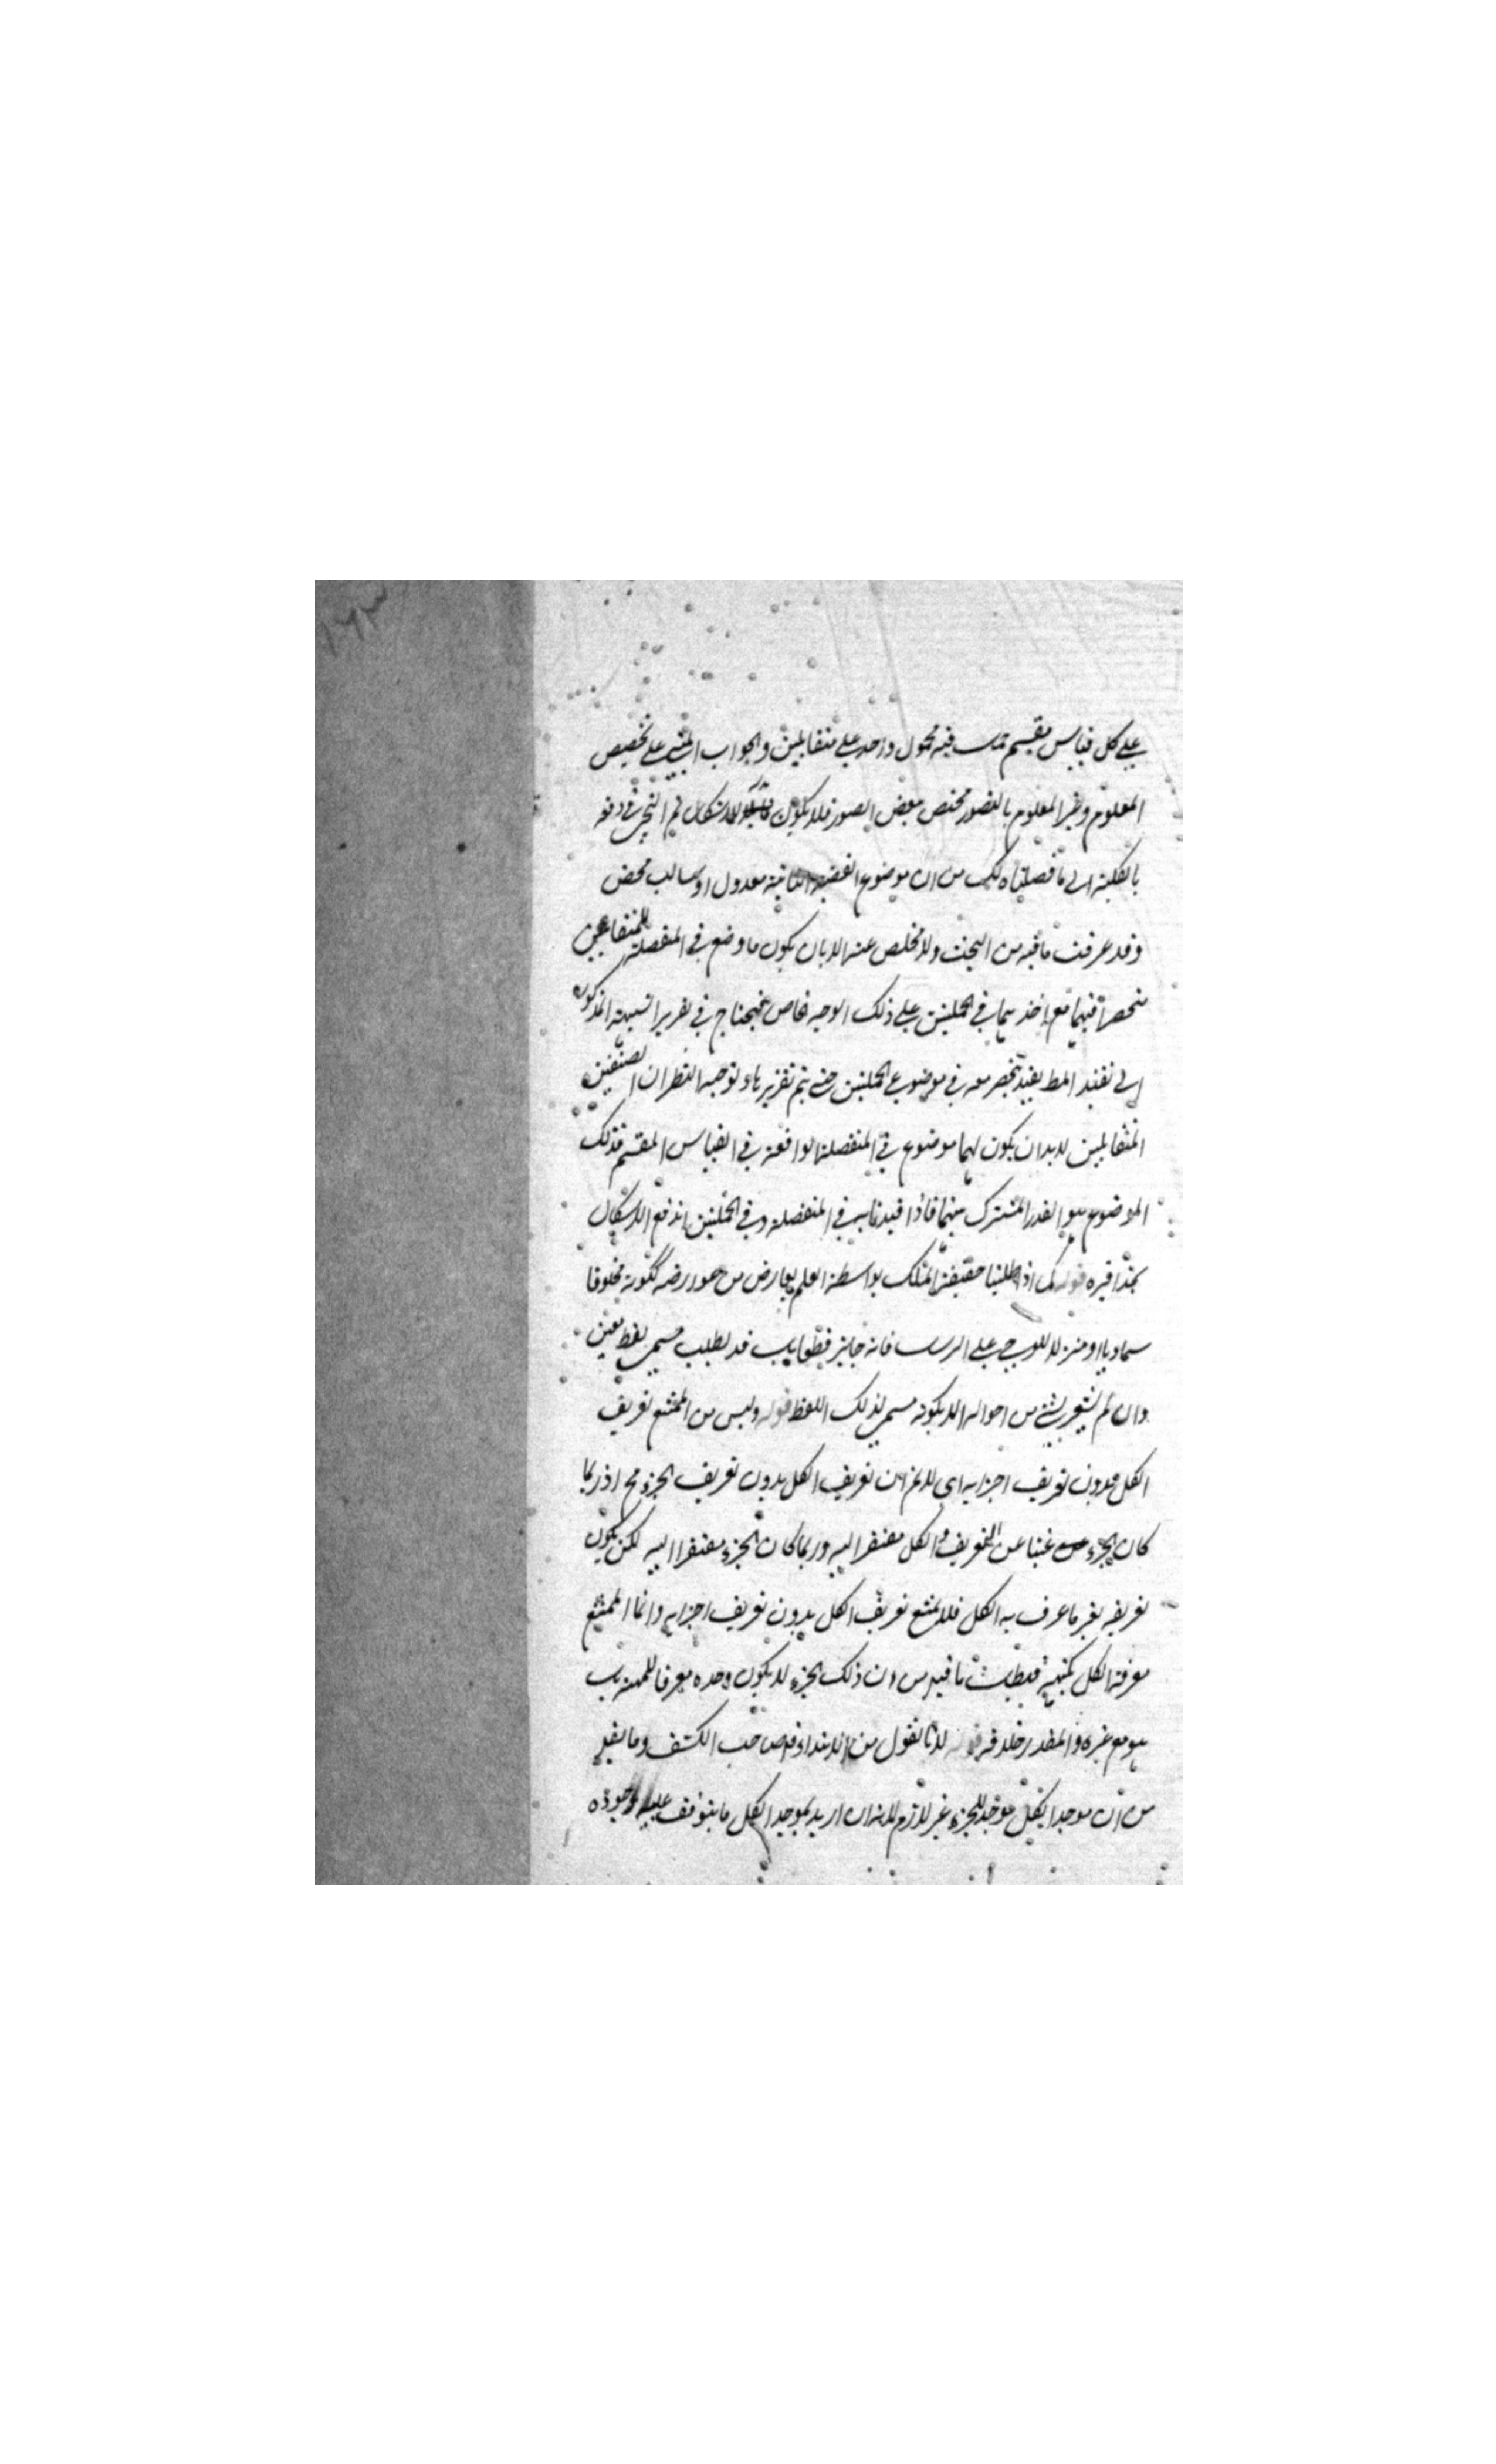 ١٦٣
على كل قياس مقسم حمل فيه محمول واحد على متقابلين والجواب المبنى على تخصيص
المعلوم وغير المعلوم بالتصور مختص ببعض الصور فلا يكون للاشكال ثم التجئ فى دفعه
بالكلية الى ما فصلناه لك من ان موضوع القضية الثانية معدول او سالب محض
وقد عرفت ما فيه من البحث ولا مخلص عنه الا بان يكون ما وضع فى المنفصلة للمتقابلين
منحصرا فيهما مع اخذهما فى الحمليتين على ذلك الوجه الخاص فيحتاج فى تقرير الشبهة المذكورة
الى تقييد المط بقيد ينحصر معه فى موضوع الحمليتين حتى يتم تقريرها وتوجيه النظر ان الصنفين
المتقابلين لابد ان يكون لهما موضوع فى المنفصلة الواقعة فى القياس المقسم فذلك
الموضوع هو القدر المشترك بينهما فاذا قيدناه به فى المنفصلة وفى الحمليتين اندفع الاشكال
بحذافيره قوله كما اذا طلبنا حقيقة الملك بواسطة العلم بعارض من عوارضه ككونه مخلوقا
سماويا او منزلا للوحى على الرسل فانه جايز قطعا بل قد يطلب مسمى لفظ معين
وان لم يشعر بشئ من احواله الا بكونه مسمى لذلك اللفظ قوله وليس من الممتنع تعريف
الكل بدون تعريف اجزايه اى لا نم ان تعريف الكل بدون تعريف الجزء مح اذ ربما
كان الجزء غنيا عن التعريف والكل مفتقرا اليه وربما كان الجزء مفتقرا اليه لكن يكون
تعريفه بغير ما عرف به الكل فلا يمتنع تعريف الكل بدون تعريف اجزايه وانما الممتنع
معرفة الكل بكنهه قبل ما فيه من ان ذلك الجزء لا يكون وحده معرفا للمهية بل
هو مع غيره والمقدر خلافه قوله لانا نقول من الابتداء قد صاحب الكشف وما يقال
من ان موجد الكل موجد للجزء غير لازم لانه ان اريد بموجد الكل ما يتوقف عليه وجوده